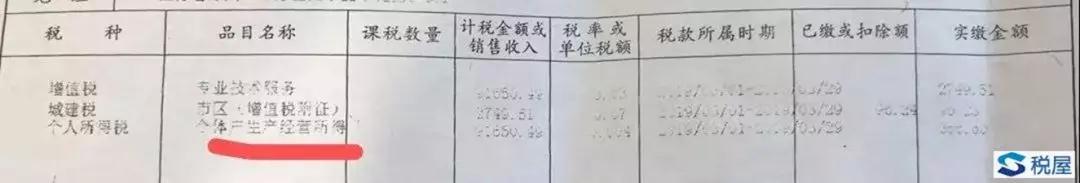 税 种 品目名称 课税数量 计税金额或销售收入 税率或单位税额 税款所属时期 已缴或扣除额 实缴金额
增值税 专业技术服务 91650.49 0.03 2019/03/01-2019/03/29 2749.51
城建税 市区(增值税附征) 2749.51 0.07 2019/03/01-2019/03/29 96.24 96.23
个人所得税 个体户生产经营所得 91650.49 2019/03/01-2019/03/29
税屋